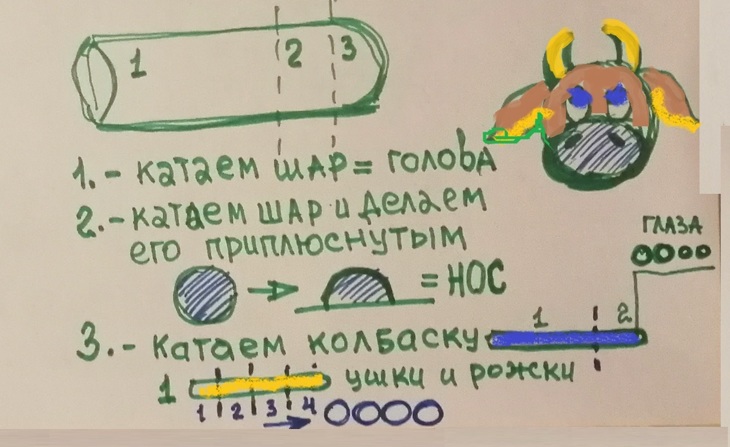 1 2 3
1.- катаем шар = голова
2.- катаем шар и делаем
его приплюснутым
= нос
ГЛАЗА
3.- катаем колбаску 1 2
1 ушки и рожки
1 2 3 4